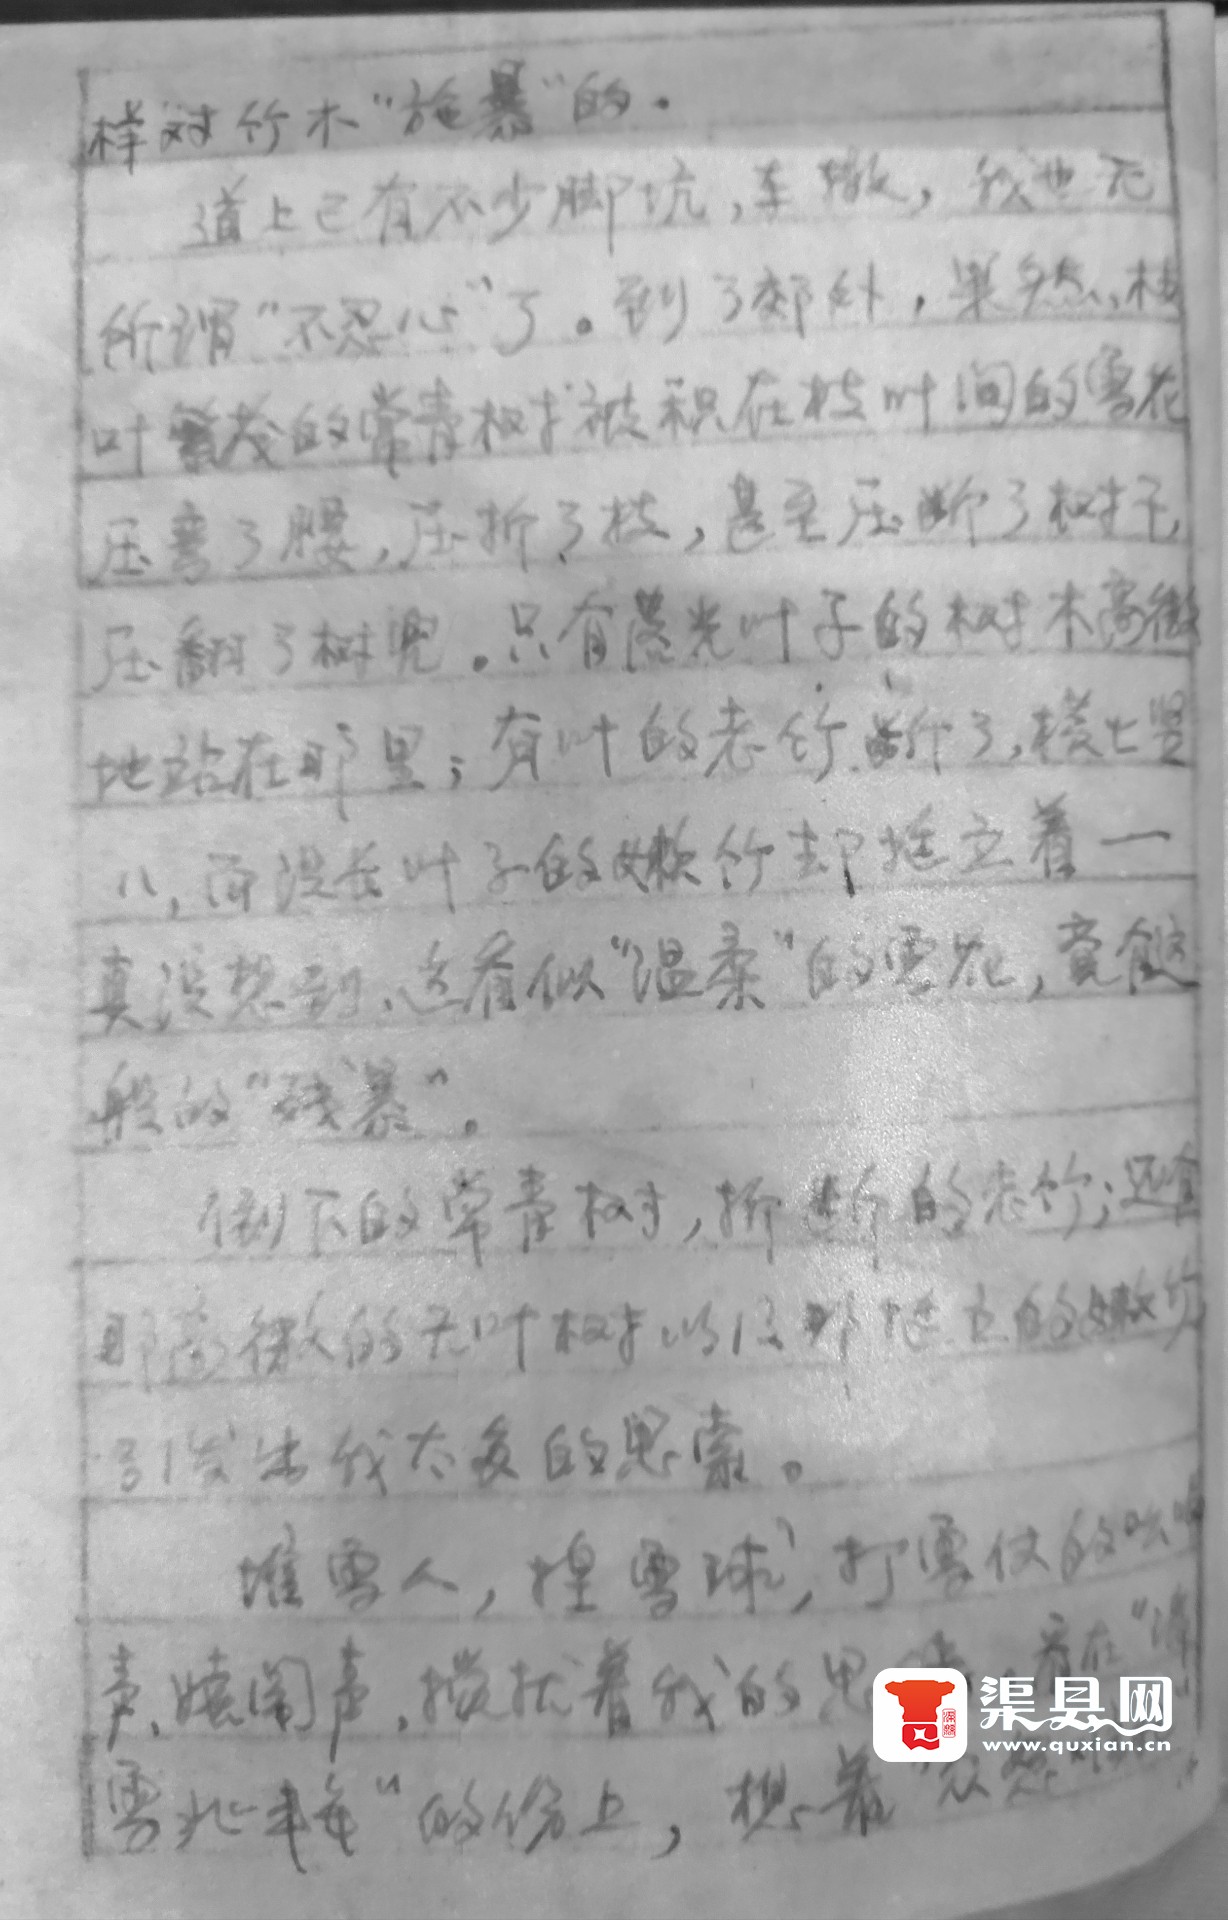 样对竹木“施暴”的.
道上已有不少脚坑,车辙,我也无
所谓“不忍心”了。到了郊外,果然,枝
叶繁茂的常青树被积在枝叶间的雪花
压弯了腰,压折了枝,甚至压断了树干,
压翻了树兜。只有落光叶子的树木高傲
地站在那里;有叶的老竹断了,横七竖
八,而没长叶子的嫩竹却挺立着一
真没想到,这看似“温柔”的雪花,竟有这
般的“残暴”。
倒下的常青树,折断的老竹;还有
那高傲的无叶树以及那挺立的嫩竹
引发出我太多的思索。
堆雪人,捏雪球,打雪仗的
声,嬉闹声,搅扰着我的思 看在“
雪兆丰年”的份上,想着“
渠县网
www.quxian.cn